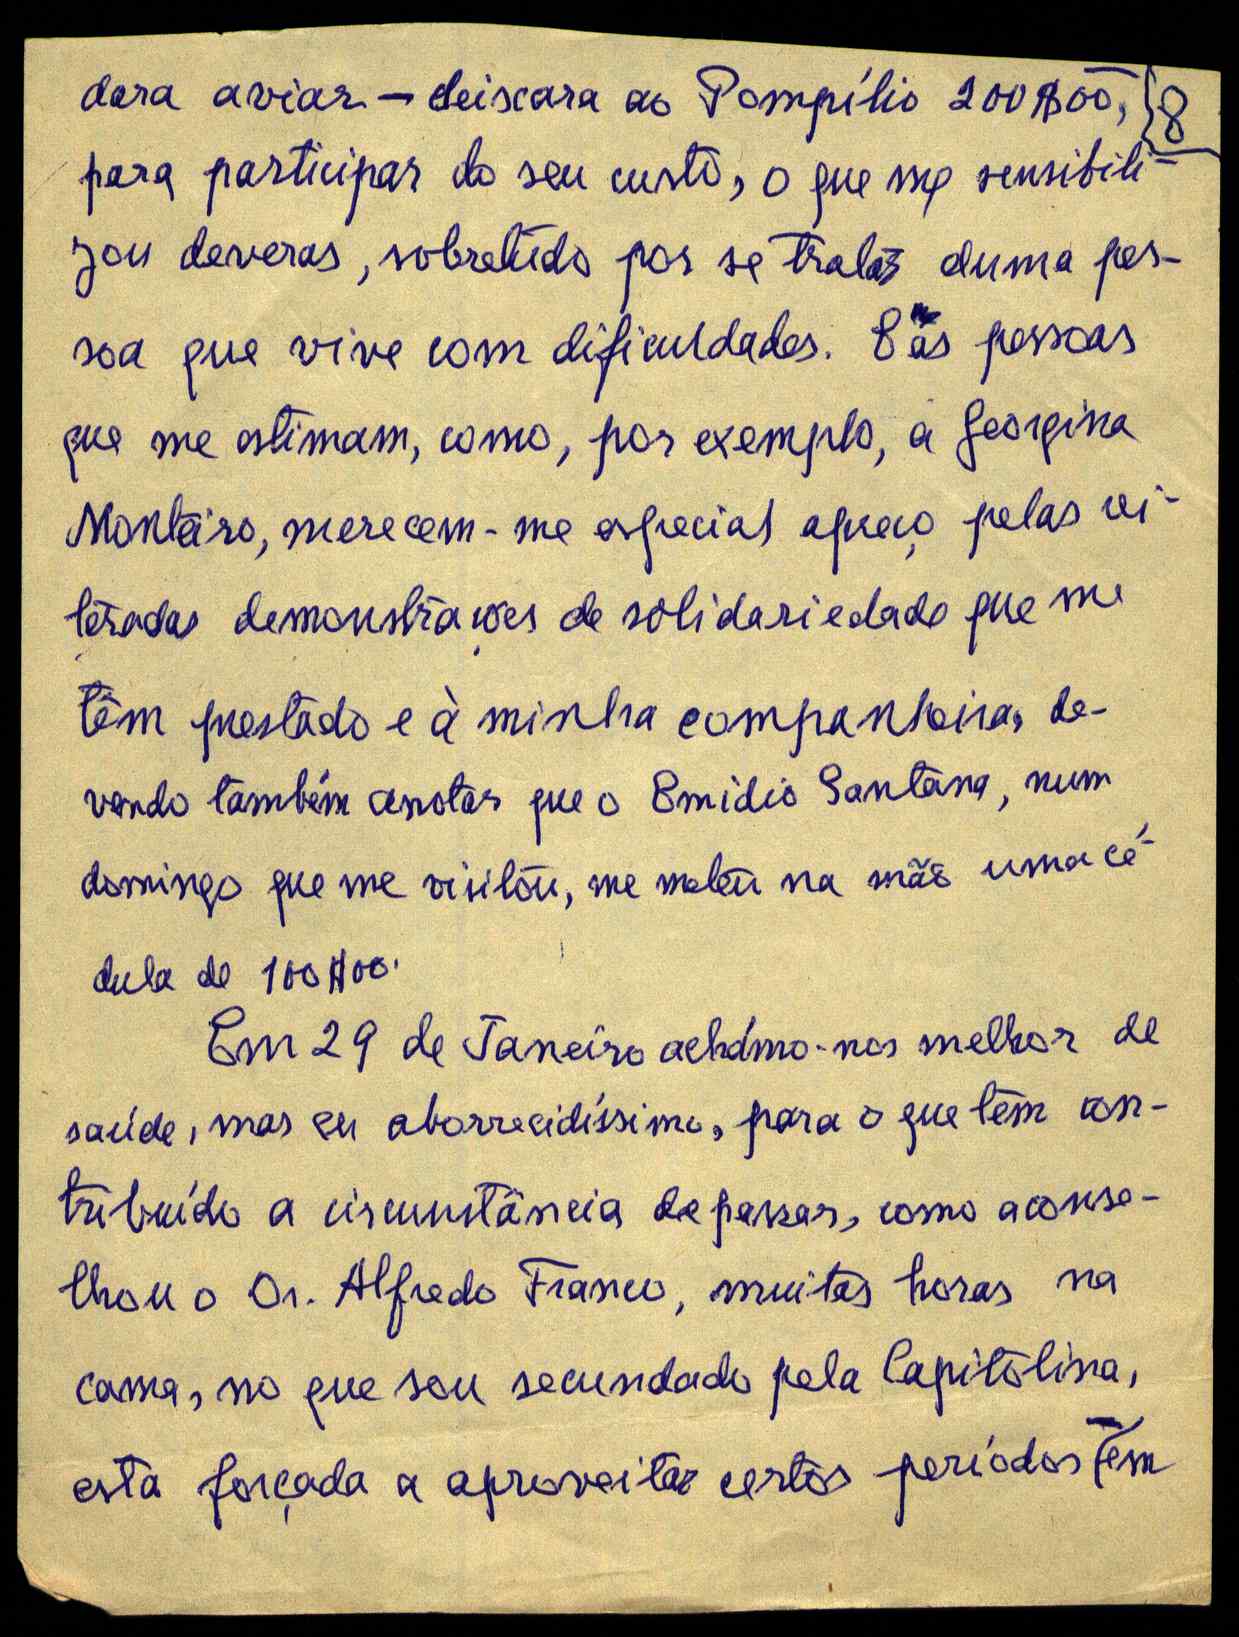 dara aviar — deixara ao Pompílio 200$00, 8
para participar do seu custo, o que me sensibili-
zou deveras, sobretudo por se tratar duma pes-
soa que vive com dificuldades. E as pessoas
que me estimam, como, por exemplo, a Georgina
Monteiro, merecem-me especial apreço pelas rei-
teradas demonstrações de solidariedade que me
têm prestado e à minha companheira, de-
vendo também anotar que o Emídio Santana, num
domingo que me visitou, me meteu na mão uma cé-
dula de 100$00.
Em 29 de Janeiro achámo-nos melhor de
saúde, mas eu aborrecidíssimo, para o que têm con-
tribuído a circunstância de passar, como aconse-
lhou o Dr. Alfredo Franco, muitas horas na
cama, no que sou secundado pela Capitolina,
esta forçada a aproveitar certos períodos têm